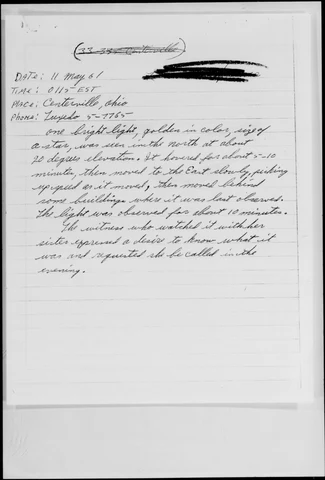 Date: 11 May 61
Time: 0115 EST
Place: Centerville, Ohio
Phone: Tuxedo 5-7765
One bright light, golden in color, size of
a star, was seen in the north at about
20 degrees elevation. It hovered for about 5-10
minutes, then moved to the East slowly, picking
up speed as it moved, then moved behind
some buildings where it was last observed.
The light was observed for about 10 minutes.
The witness who watched it with her
sister expressed a desire to know what it
was and requested she be called in the
evening.